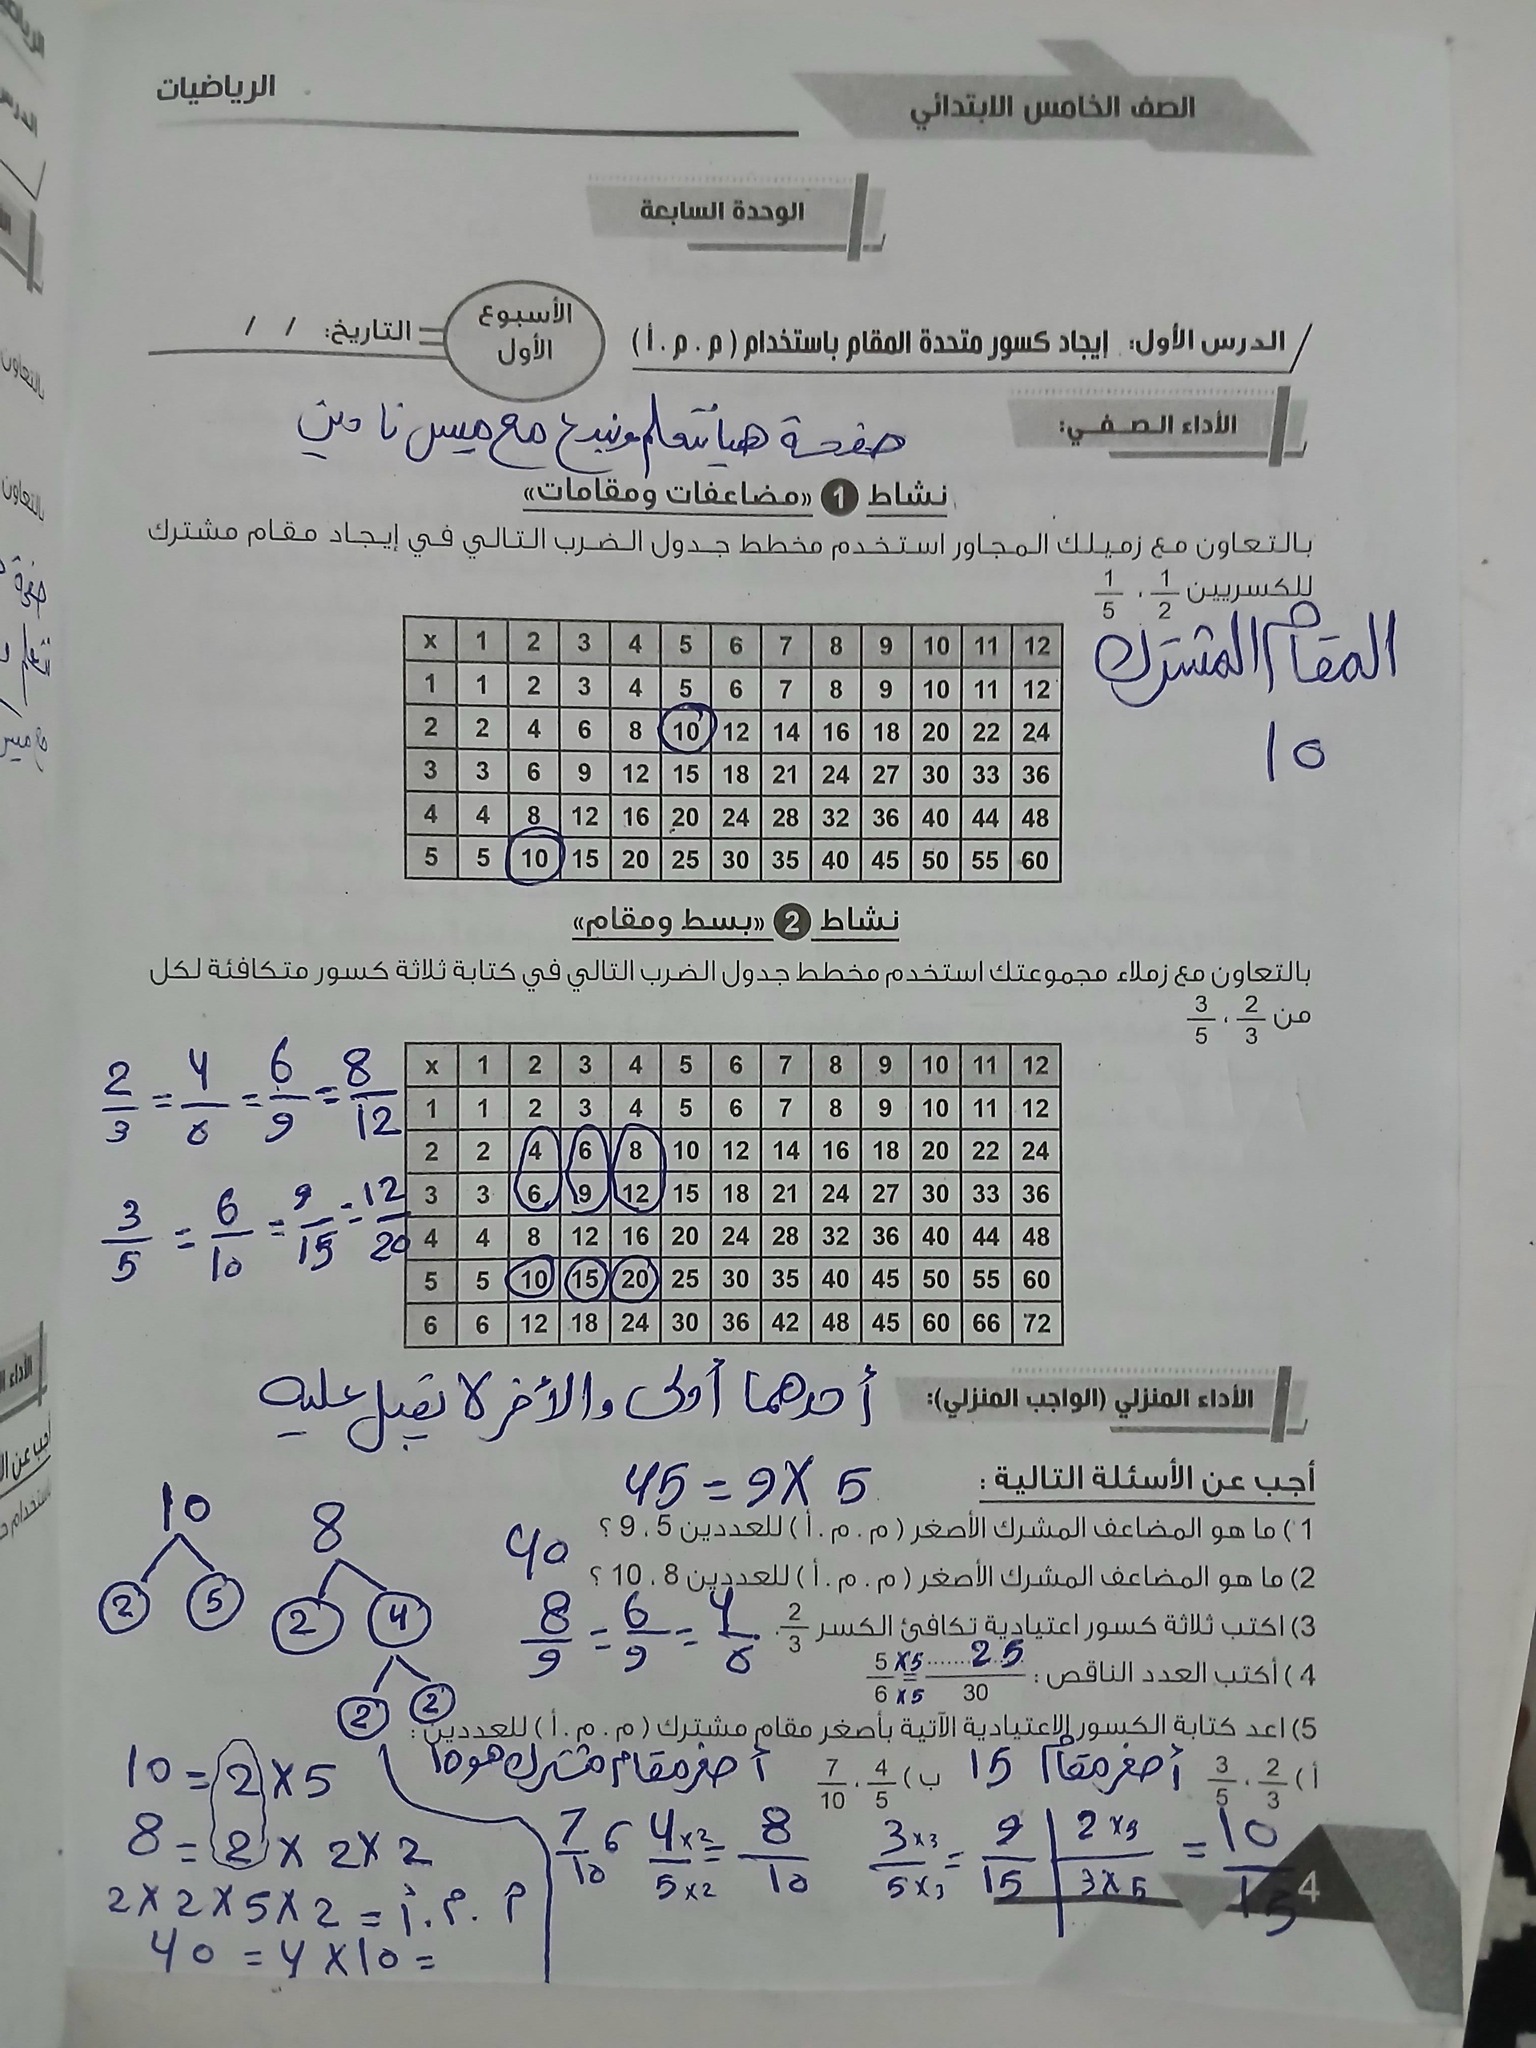 الرياضيات
الصف الخامس الابتدائي
الوحدة السابعة
الدرس الأول: إيجاد كسور متحدة المقام باستخدام ( م . م . أ )
الأسبوع الأول
التاريخ: / /
الأداء الصفي:
صفحة هيا نتعلم ونبدع مع ميس نا
نشاط 1 «مضاعفات ومقامات»
بالتعاون مع زميلك المجاور استخدم مخطط جدول الضرب التالي في إيجاد مقام مشترك
للكسريين 1/2 ، 1/5
المقام المشترك
10
x 1 2 3 4 5 6 7 8 9 10 11 12
1 1 2 3 4 5 6 7 8 9 10 11 12
2 2 4 6 8 10 12 14 16 18 20 22 24
3 3 6 9 12 15 18 21 24 27 30 33 36
4 4 8 12 16 20 24 28 32 36 40 44 48
5 5 10 15 20 25 30 35 40 45 50 55 60
نشاط 2 «بسط ومقام»
بالتعاون مع زملاء مجموعتك استخدم مخطط جدول الضرب التالي في كتابة ثلاثة كسور متكافئة لكل
من 2/3 ، 3/5
2/3 = 4/6 = 6/9 = 8/12
3/5 = 6/10 = 9/15 = 12/20
x 1 2 3 4 5 6 7 8 9 10 11 12
1 1 2 3 4 5 6 7 8 9 10 11 12
2 2 4 6 8 10 12 14 16 18 20 22 24
3 3 6 9 12 15 18 21 24 27 30 33 36
4 4 8 12 16 20 24 28 32 36 40 44 48
5 5 10 15 20 25 30 35 40 45 50 55 60
6 6 12 18 24 30 36 42 48 45 60 66 72
الأداء المنزلي (الواجب المنزلي):
أحدهما أولى والآخر لا يقبل عليه
أجب عن الأسئلة التالية :
45 = 9 X 5
1 ) ما هو المضاعف المشرك الأصغر ( م . م . أ ) للعددين 5 ، 9 ؟
2) ما هو المضاعف المشرك الأصغر ( م . م . أ ) للعددين 8 ، 10 ؟
40
3) اكتب ثلاثة كسور اعتيادية تكافئ الكسر 2/3 .
8/9 = 6/9 = 4/6
4 ) أكتب العدد الناقص : 5/6 = ......./30
X5 25
X5
5) اعد كتابة الكسور الاعتيادية الآتية بأصغر مقام مشترك ( م . م . أ ) للعددين :
أ ) 2/3 ، 3/5
أصغر مقام 15
ب ) 4/5 ، 7/10
أصغر مقام مشترك هو 10
10
2 5
8
2 4
2 2
10 = 2 X 5
8 = 2 X 2 X 2
2 X 2 X 5 X 2 = م . م . أ
40 = 4 X 10 =
7/10 6 4x2/5x2 = 8/10
3x3/5x3 = 9/15
2x9/3x5 = 10/15
4